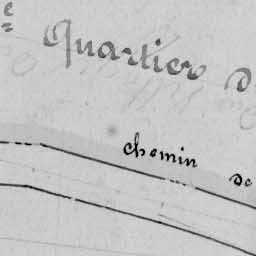 e Quartier d
chemin de